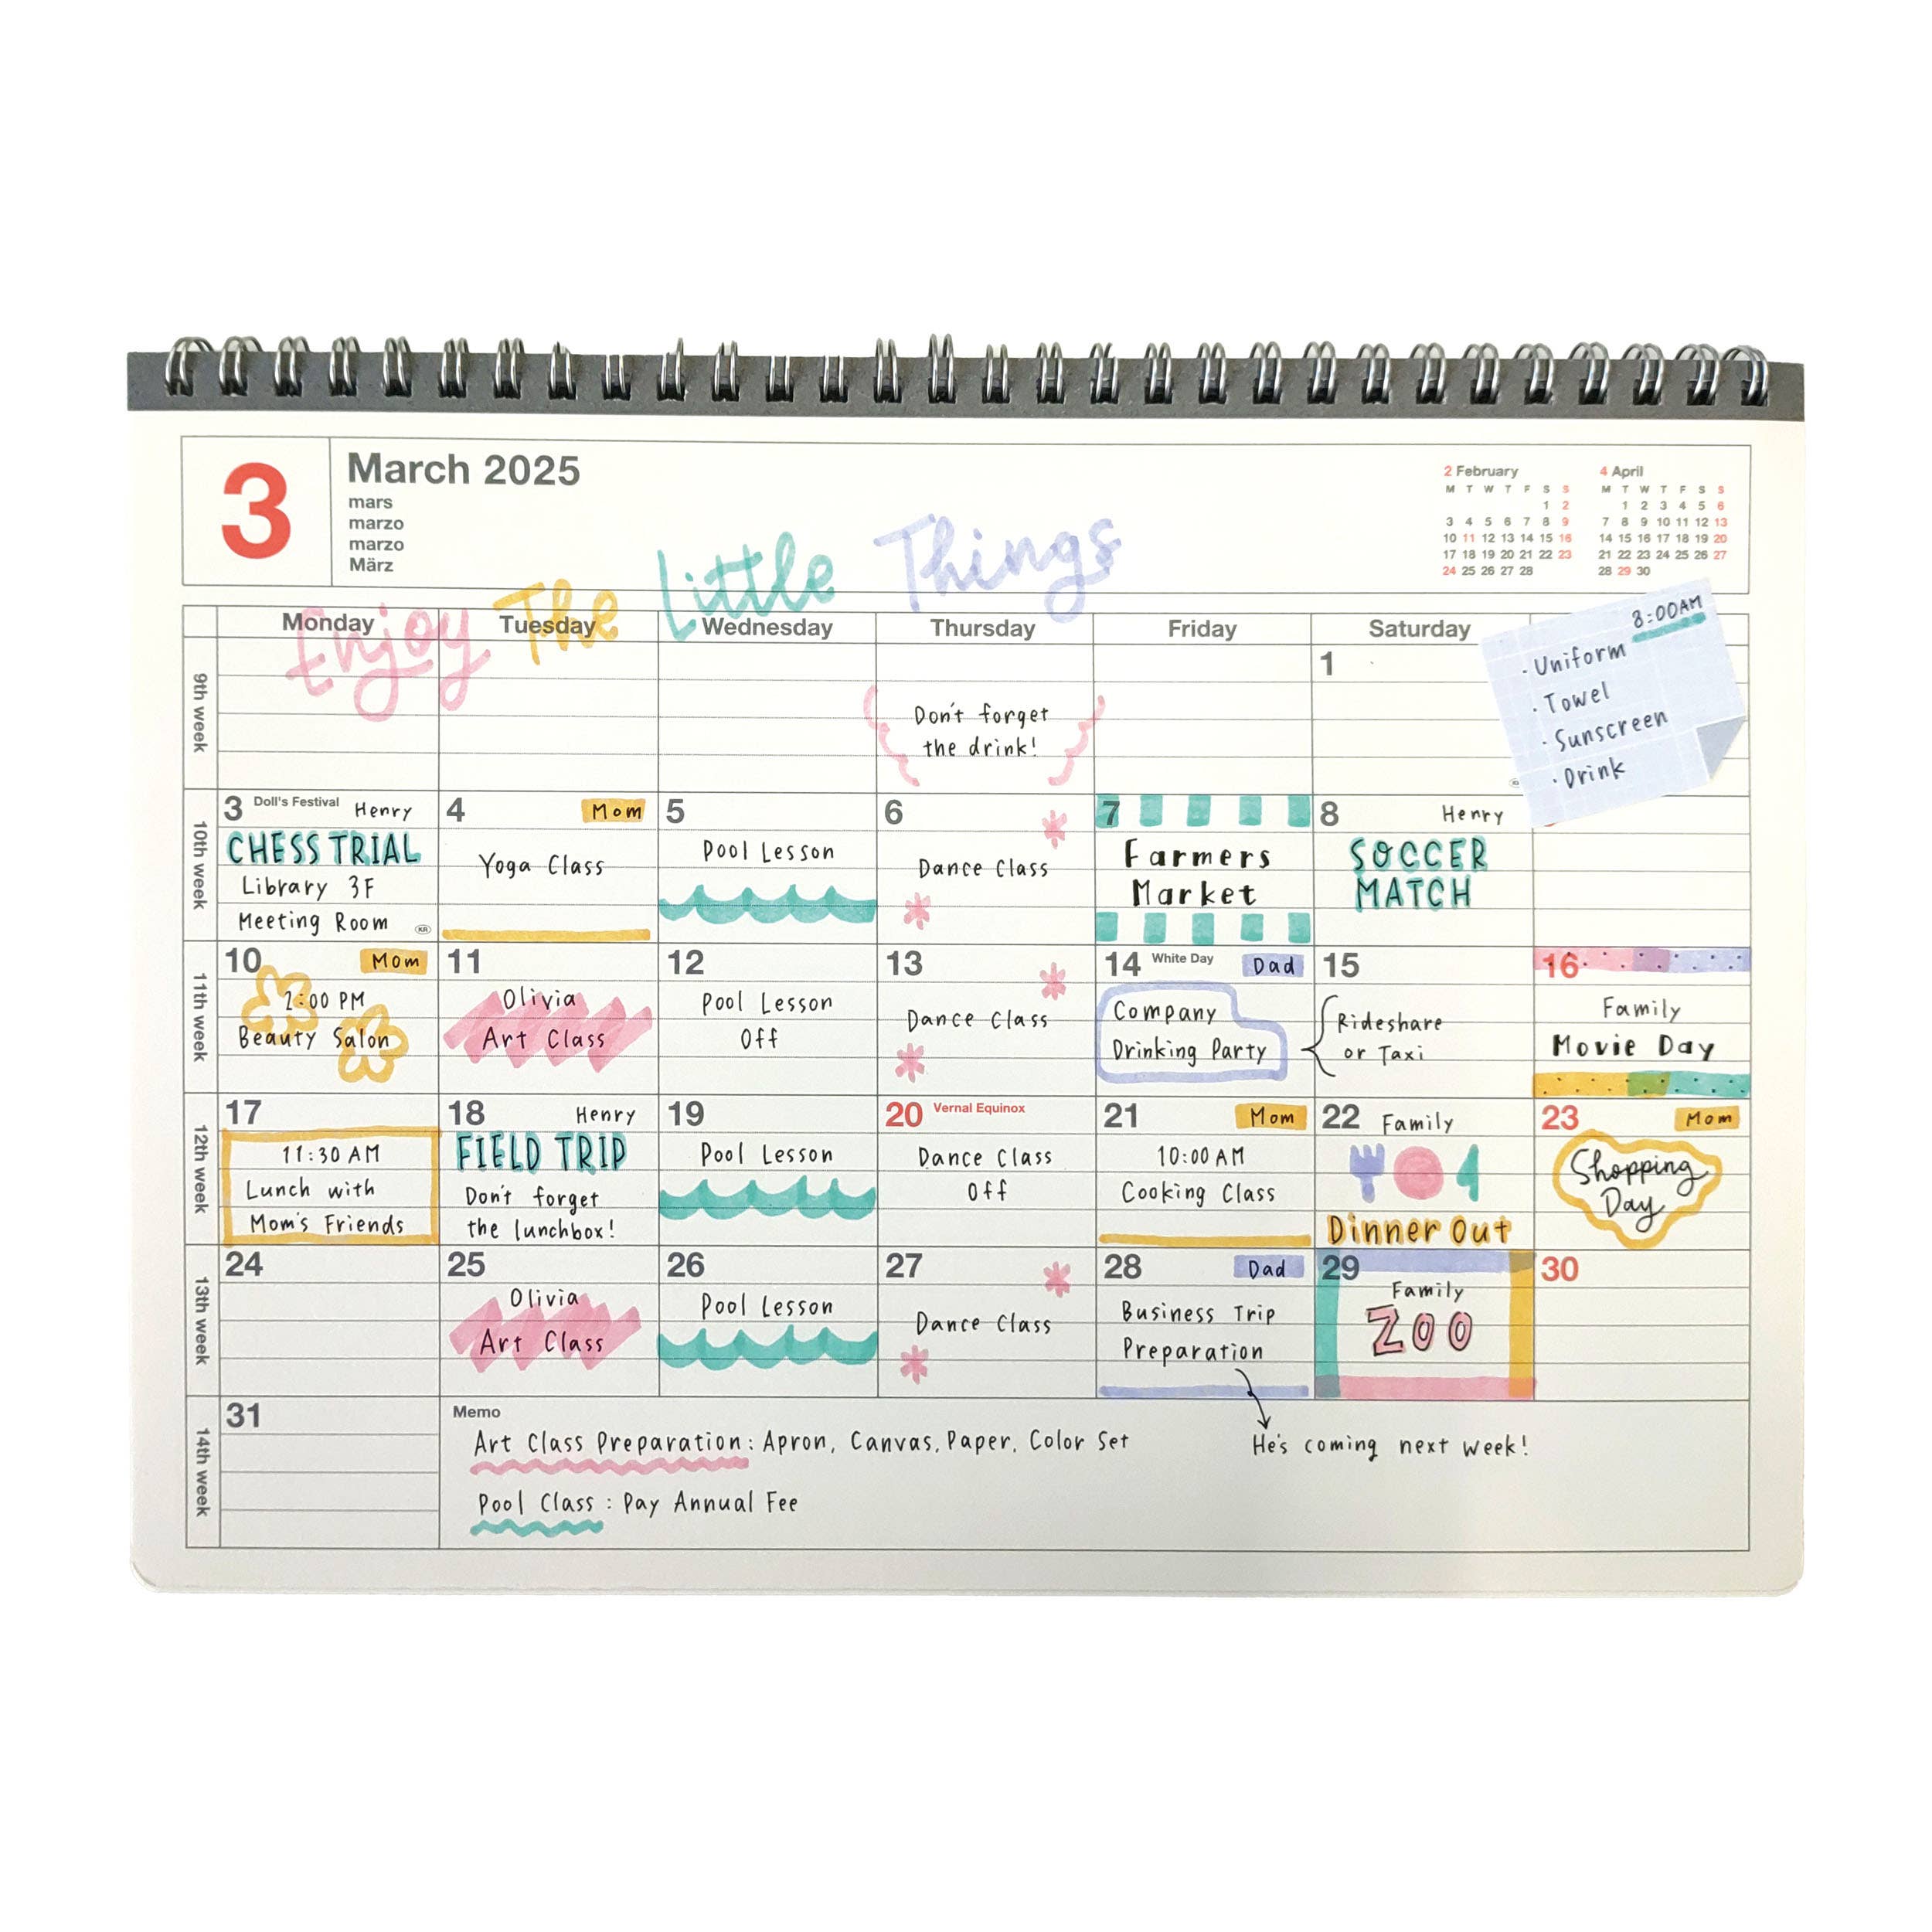 3
March 2025
mars
marzo
marzo
März
2 February
M T W T F S S
1 2
3 4 5 6 7 8 9
10 11 12 13 14 15 16
17 18 19 20 21 22 23
24 25 26 27 28
4 April
M T W T F S S
1 2 3 4 5 6
7 8 9 10 11 12 13
14 15 16 17 18 19 20
21 22 23 24 25 26 27
28 29 30
Enjoy The Little Things
Monday Tuesday Wednesday Thursday Friday Saturday
8:00AM
· Uniform
· Towel
· Sunscreen
· Drink
9th week
Don't forget
the drink!
1
10th week
3 Doll's Festival Henry
CHESS TRIAL
Library 3F
Meeting Room
KR
4 Mom
Yoga Class
5
Pool Lesson
6
Dance Class
7
Farmers
Market
8 Henry
SOCCER
MATCH
11th week
10 Mom
2:00 PM
Beauty Salon
11
Olivia
Art Class
12
Pool Lesson
Off
13
Dance Class
14 White Day Dad
Company
Drinking Party
15
Rideshare
or Taxi
16
Family
Movie Day
12th week
17
11:30 AM
Lunch with
Mom's Friends
18 Henry
FIELD TRIP
Don't forget
the lunchbox!
19
Pool Lesson
20 Vernal Equinox
Dance Class
Off
21 Mom
10:00 AM
Cooking Class
22 Family
Dinner Out
23 Mom
Shopping
Day
13th week
24
25
Olivia
Art Class
26
Pool Lesson
27
Dance Class
28 Dad
Business Trip
Preparation
29
Family
ZOO
30
14th week
31
Memo
Art Class Preparation: Apron, Canvas, Paper, Color Set
Pool Class : Pay Annual Fee
He's coming next week!